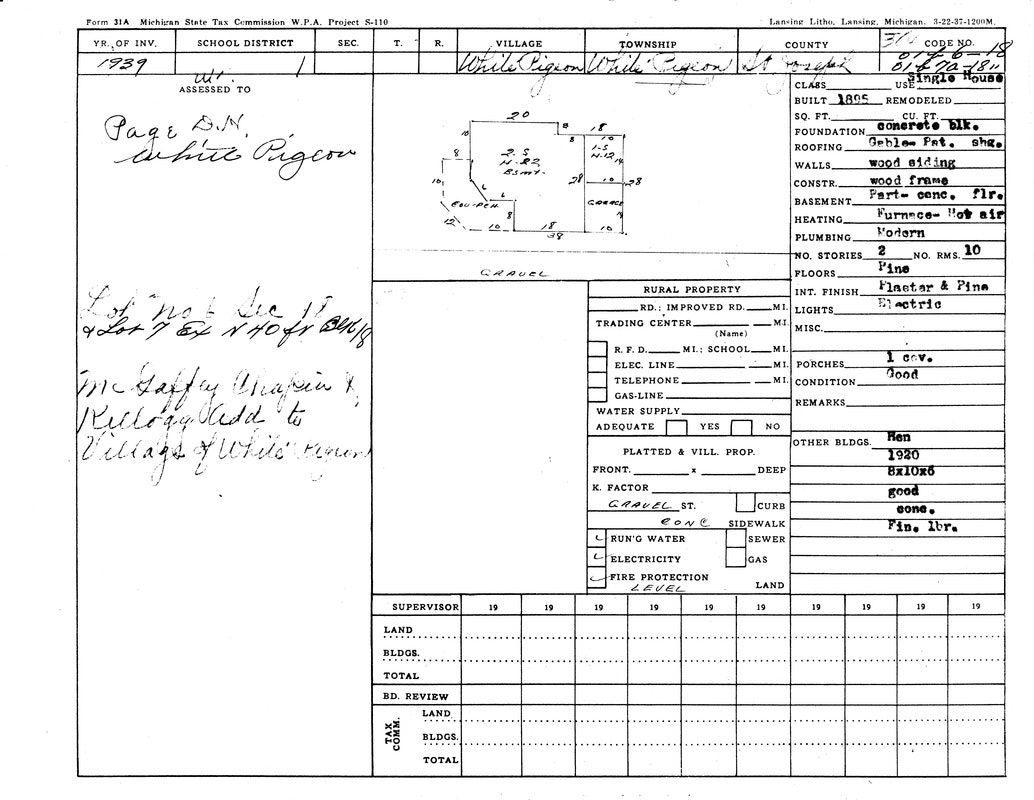 Form 31A Michigan State Tax Commission W.P.A. Project S-110
Lansing Litho, Lansing, Michigan. 3-22-37-1200M.
YR. OF INV. SCHOOL DISTRICT SEC. T. R. VILLAGE TOWNSHIP COUNTY CODE NO.
1939 1 White Pigeon White Pigeon St Joseph
ASSESSED TO
Page D.N.
White Pigeon
Lot No 6 Sec 18
& Lot 7 Ex N 40 ft Blk 18
McGaffey Chapin &
Kellogg Add to
Village of White Pigeon
20
8
18
10
8
10
8
2.S
H-22
Bsmt.
1-S
H-12
14
10
28
10
28
GARAGE
10
12
10
8
18
10
38
GRAVEL
CLASS USE Single House
BUILT 1895 REMODELED
SQ. FT. CU. FT.
FOUNDATION concrete blk.
ROOFING Gable- Pat. shg.
WALLS wood siding
CONSTR. wood frame
BASEMENT Part- conc. flr.
HEATING Furnace- Hot air
PLUMBING Modern
NO. STORIES 2 NO. RMS. 10
FLOORS Pine
INT. FINISH Plaster & Pine
LIGHTS Electric
MISC.
PORCHES 1 cov.
CONDITION Good
REMARKS
OTHER BLDGS. Hen
1920
8x10x6
good
conc.
Fin. lbr.
RURAL PROPERTY
RD.; IMPROVED RD. MI.
TRADING CENTER MI.
(Name)
R. F. D. MI.; SCHOOL MI.
ELEC. LINE MI.
TELEPHONE MI.
GAS-LINE
WATER SUPPLY
ADEQUATE YES NO
PLATTED & VILL. PROP.
FRONT. x DEEP
K. FACTOR
GRAVEL ST. CURB
CONC SIDEWALK
RUN'G WATER SEWER
ELECTRICITY GAS
FIRE PROTECTION
LEVEL LAND
SUPERVISOR 19 19 19 19 19 19 19 19 19
LAND
BLDGS.
TOTAL
BD. REVIEW
TAX COMM.
LAND
BLDGS.
TOTAL